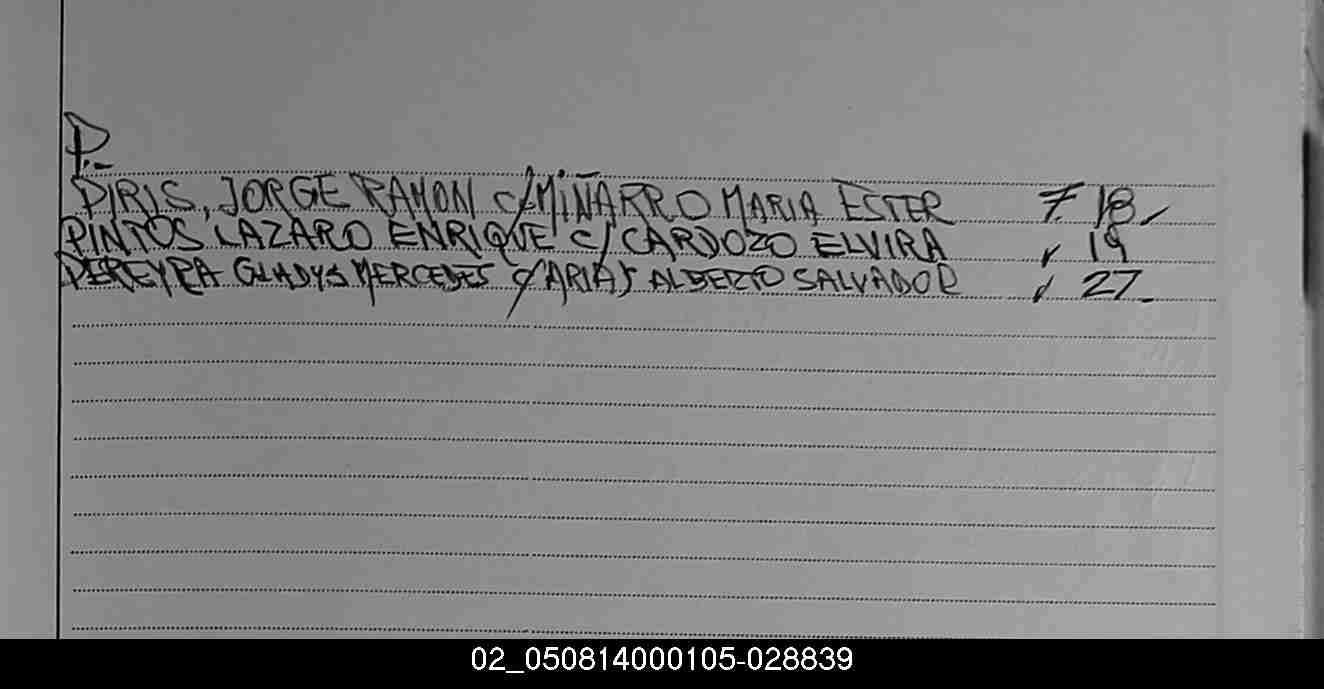 P.-
PIRIS, JORGE RAMON c/MIÑARRO MARIA ESTER F. 18
PINTOS LAZARO ENRIQUE c/ CARDOZO ELVIRA " 19
PEREYRA GLADYS MERCEDES c/ARIAS ALBERTO SALVADOR " 27-
02_050814000105-028839